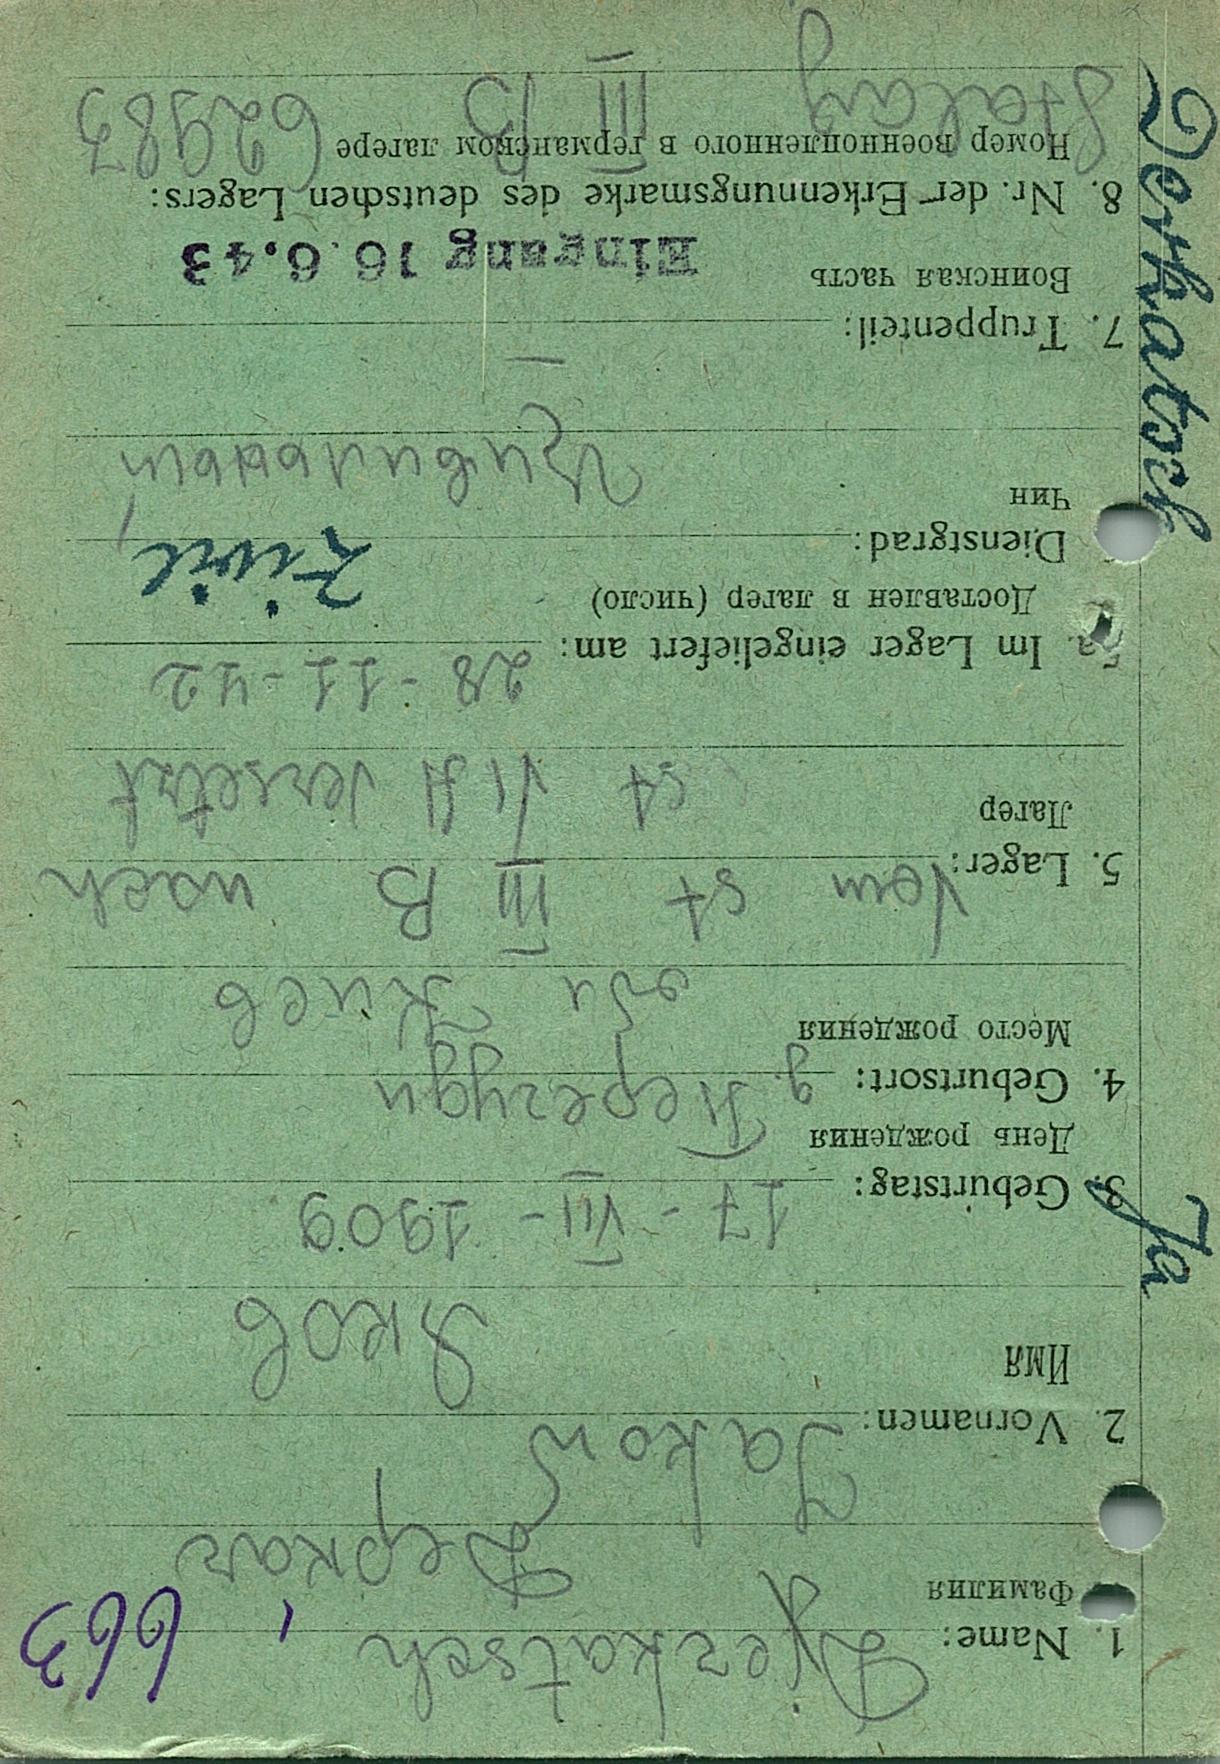 663
1. Name: Djerkatsch
Фамилия Деркач
2. Vornamen: Jakow
Имя Яков
3. Geburtstag: 17 - VII - 1909
День рождения
4. Geburtsort: д. Перегуди
Место рождения обл Киев
5. Lager: Vom St III B nach
Лагер St VI A versetzt
5a. Im Lager eingeliefert am: 28 - 11 - 42
Доставлен в лагер (число)
Dienstgrad: Zivil
Чин
7. Truppenteil: —
Воинская часть Eingang 16.6.43
8. Nr. der Erkennungsmarke des deutschen Lagers:
Номер военнопленного в германском лагере 62983
Stalag III B
Ja
Derkatsch